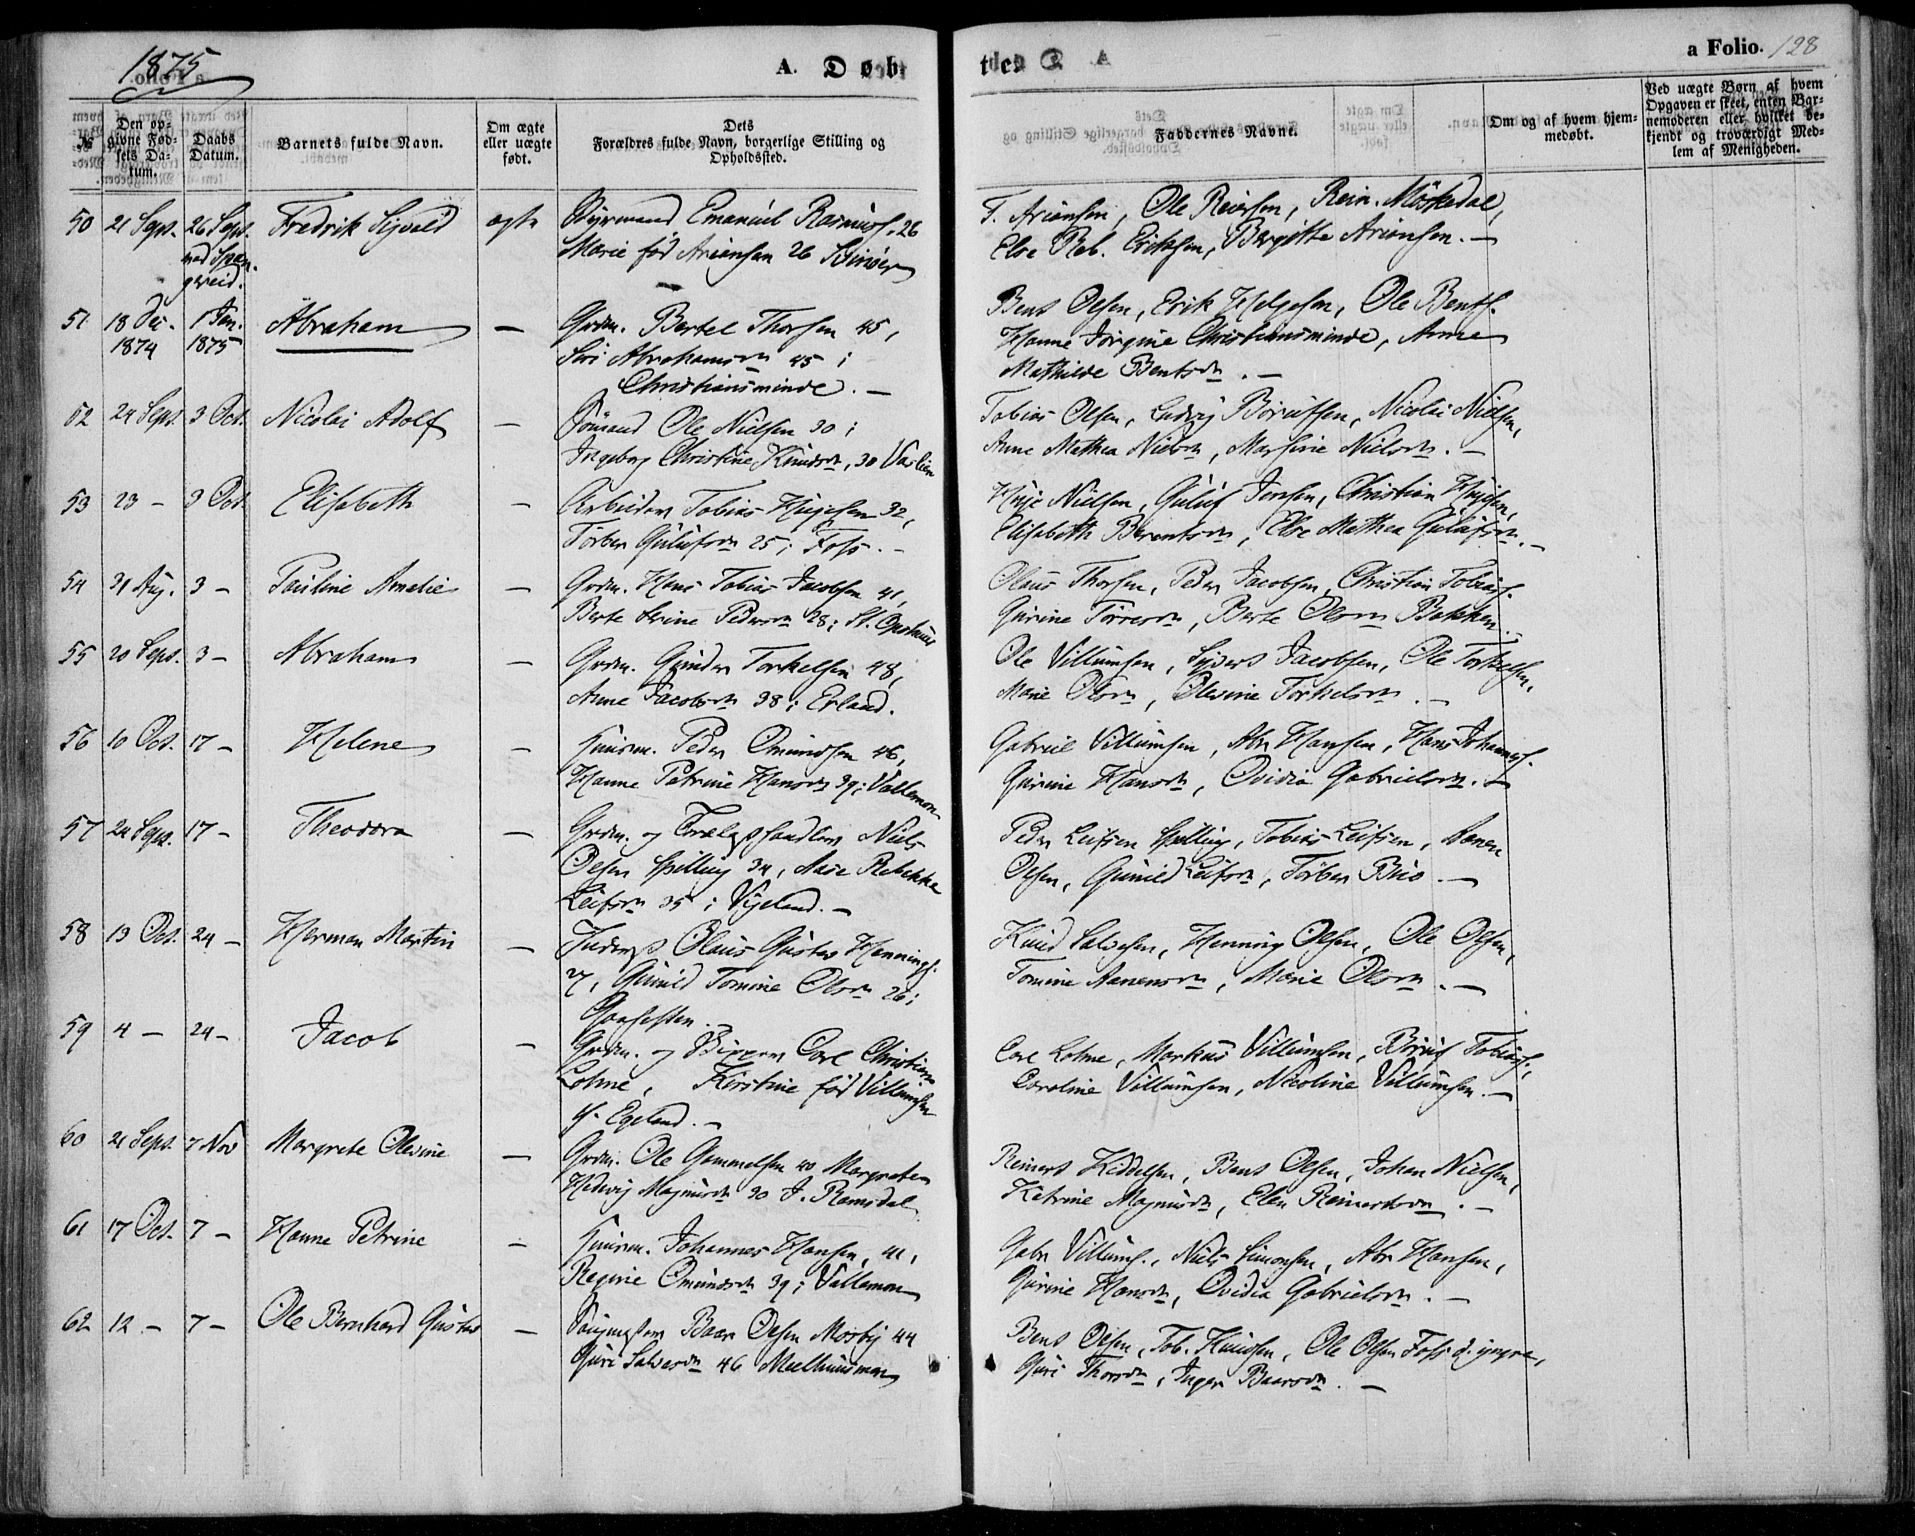 1875
A. Døb
tes.
a Folio. 128
№
Den op-
givne Fød-
sels Da-
tum.
Daabs
Datum.
Barnets fulde Navn.
Om ægte
eller uægte
født.
Dets
Forældres fulde Navn, borgerlige Stilling og
Opholdssted.
Faddernes Navne.
Om og af hvem hjem-
medøbt.
Ved uægte Børn af hvem
Opgaven er skeet, enten Bar-
nemoderen eller hvilket be-
kjendt og troværdigt Med-
lem af Menigheden.
50 21 Sept. 26 Sept. Fredrik Sigvald ægte Styrmand Emanuel Rasmuss. 26
ved Span- Marie fød Ariansen 26
gereid.
T. Ariansen, Ole Reiersen, Rein. Mörkedal,
Else Reb. Eriksen, Bergitte Ariansen. —
51 18 Dec. 1 Jan. Abraham — Grdm. Bertel Thorsen 45,
1874 1875 Siri Abrahamsdtr 45;
Christiansminde. —
Bent Olsen, Erik Helgesen, Ole Bents.
Hanne Jörgine Christiansminde, Anne
Mathilde Bentsdtr. —
52 24 Sept. 3 Oct. Nicolai Adolf — Sömand Ole Nielsen 30;
Ingeborg Christine Knudsdtr, 30
Tobias Olsen, Ludvig Börufsen, Nicolai Nielsen,
Anne Mathea Nielsdtr, Marserine Nielsdtr. —
53 23 — 3 Oct. Elisabeth — Arbeider Tobias Hujesen 32,
Torber Gulufsdtr 25; Foss. —
Huje Nielsen, Guluf Jensen, Christian Hujesen,
Elisabeth Berentsdtr, Else Mathea Gulufsdtr. —
54 31 Aug. 3 — Pauline Amalie — Grdm. Hans Tobias Jacobsen 41,
Berte Serine Pedersdtr 28; St. Opshuus
Olaus Thorsen, Peder Jacobsen, Christian Tobias.
Gurine Torresdtr, Berte Olsdtr Bakken.
55 20 Sept. 3 — Abraham — Grdm. Gunder Torkelsen 48,
Anne Jacobsdtr 38; Erland.
Ole Villumsen, Syvert Jacobsen, Ole Torkelsen,
Marie Olsdtr, Olevine Torkelsdtr. —
56 10 Oct. 17 — Helene — Huusm. Peder Omundsen 46,
Hanne Petrine Hansdtr 39; Vallemon
Gabriel Villumsen, Abr Hansen, Hans Johannes.
Gurine Hansdtr, Ovidia Gabrielsdtr. —
57 24 Sept. 17 — Theodora — Grdm. og Trælasthandler Niels
Olsen Spilling 34, Marie Rebekke
Leifsdtr 35; Vigeland. —
Peder Leifsen Spilling, Tobias Leifsen, Aanen
Olsen, Gunild Leifsdtr, Torber Buö. —
58 13 Oct. 24 — Herman Martin — Inderst Olaus Gustav Hennings.
27, Gunild Tomine Olsdtr 26;
Knud Salvesen, Henning Olsen, Ole Olsen,
Tomine Aanensdtr, Marie Olsdtr. —
59 4 — 24 — Jacob — Grdm. og Carl Christian
Lohne, Kirstine fød Villumsen
Y. Egeland. —
Carl Lohne, Markus Villumsen, Böruf Tobias.,
Caroline Villumsen, Nicoline Villumsen. —
60 21 Sept. 7 Nov Margrete Olevine — Grdm. Ole Gammelsen 40 Margrete
Hedvig Magnusdtr 30 J. Ramsdal
Reinert Keddelsen, Bent Olsen, Johan Nielsen,
Katrine Magnusdtr, Elen Reinertsdtr. —
61 17 Oct. 7 — Hanne Petrine — Huusm. Johannes Hansen, 41,
Regine Omundsdtr 39; Vallemon
Gabr Villums., Niels Simonsen, Abr Hansen,
Gurine Hansdtr, Ovidia Gabrielsdtr. —
62 12 — 7 — Ole Bernhard Gustav — Baar Olsen Mosby 44
Guri Salvesdtr 46 Meelhuusmoen
Bent Olsen, Tob. Knudsen, Ole Olsen Foss d. yngre,
Guri Thorsdtr, Inger Baarsdtr. —